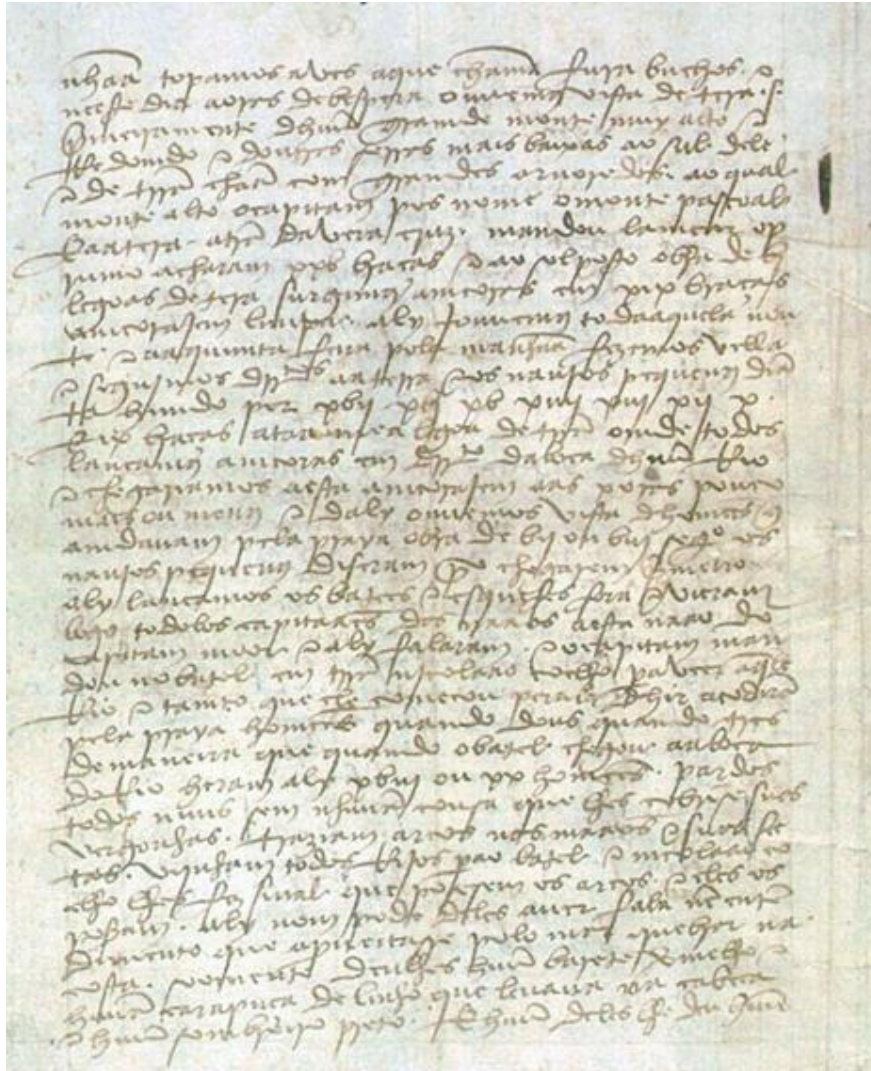 nhaã topamos aves aque chamã fura buchos. e
neeste dia aoras de bespera ouuemos vista de tera .s.
premeiramente dhuũ gramde monte muy alto e
Redomdo e doutras serras mais baixas ao sul dele
e de trra chaã com grandes aruoredos. ao qual
monte alto ocapitam pos nome omonte pascoal
E aatera. atrra davera cruz. mandou lamcar opr
umo acharam xxb bracas e ao sol posto obra de bj
legoas de tera surgimos amcoras em xix bracas
amcorajem limpa. aly jouuemos todaaquela nou
te e aaquimta feira pola manhaã fezemos vella
e seguimos drtos aaterra e os nauios pequenos diã
te himdo per xbij xbj xb xiiij xiij xij x.
E ix bracas ataa mea legoa de trra omde todos
lancamos amcoras em drto daboca dhuũ Rio
e chegariamos aesta amcorajem aas x oras pouco
mais ou menos e daly ouuemos vista dhomees q
amdauam pela praya obra de bij ou biij segº os
nauios pequenos diseram por chegarem primeiro
aly lancamos os batees e esquifes fora e vieram
logo todolos capitaães das naaos aesta naao do
capitam moor e aly falaram. e ocapitam man
dou no batel em trra nicolaao coelho pa veer aqle
Rio e tamto que ele comecou perala dhir acodirã
pela praya homees quando dous quando tres
de maneira que quando obatel chegou aaboca
do Rio heram aly xbiij ou xx homees. pardos
todos nuus sem nhuũa cousa que lhes cobrise suas
vergonhas. traziam arcos nas maãos e suas see
tas. vijnham todos Rijos pao batel e nicolaao co
elho lhes fez sinal que posesem os arcos. e eles os
poseram. aly nom pode deles auer fala nẽ enten
dimento que aproueitasse polo mar quebrar na
costa. soomente deulhes huũ barete vermelho e
huũa carapuca de linho que leuaua na cabeca
e huũ sombreiro preto. E huũ deles lhe deu huũ